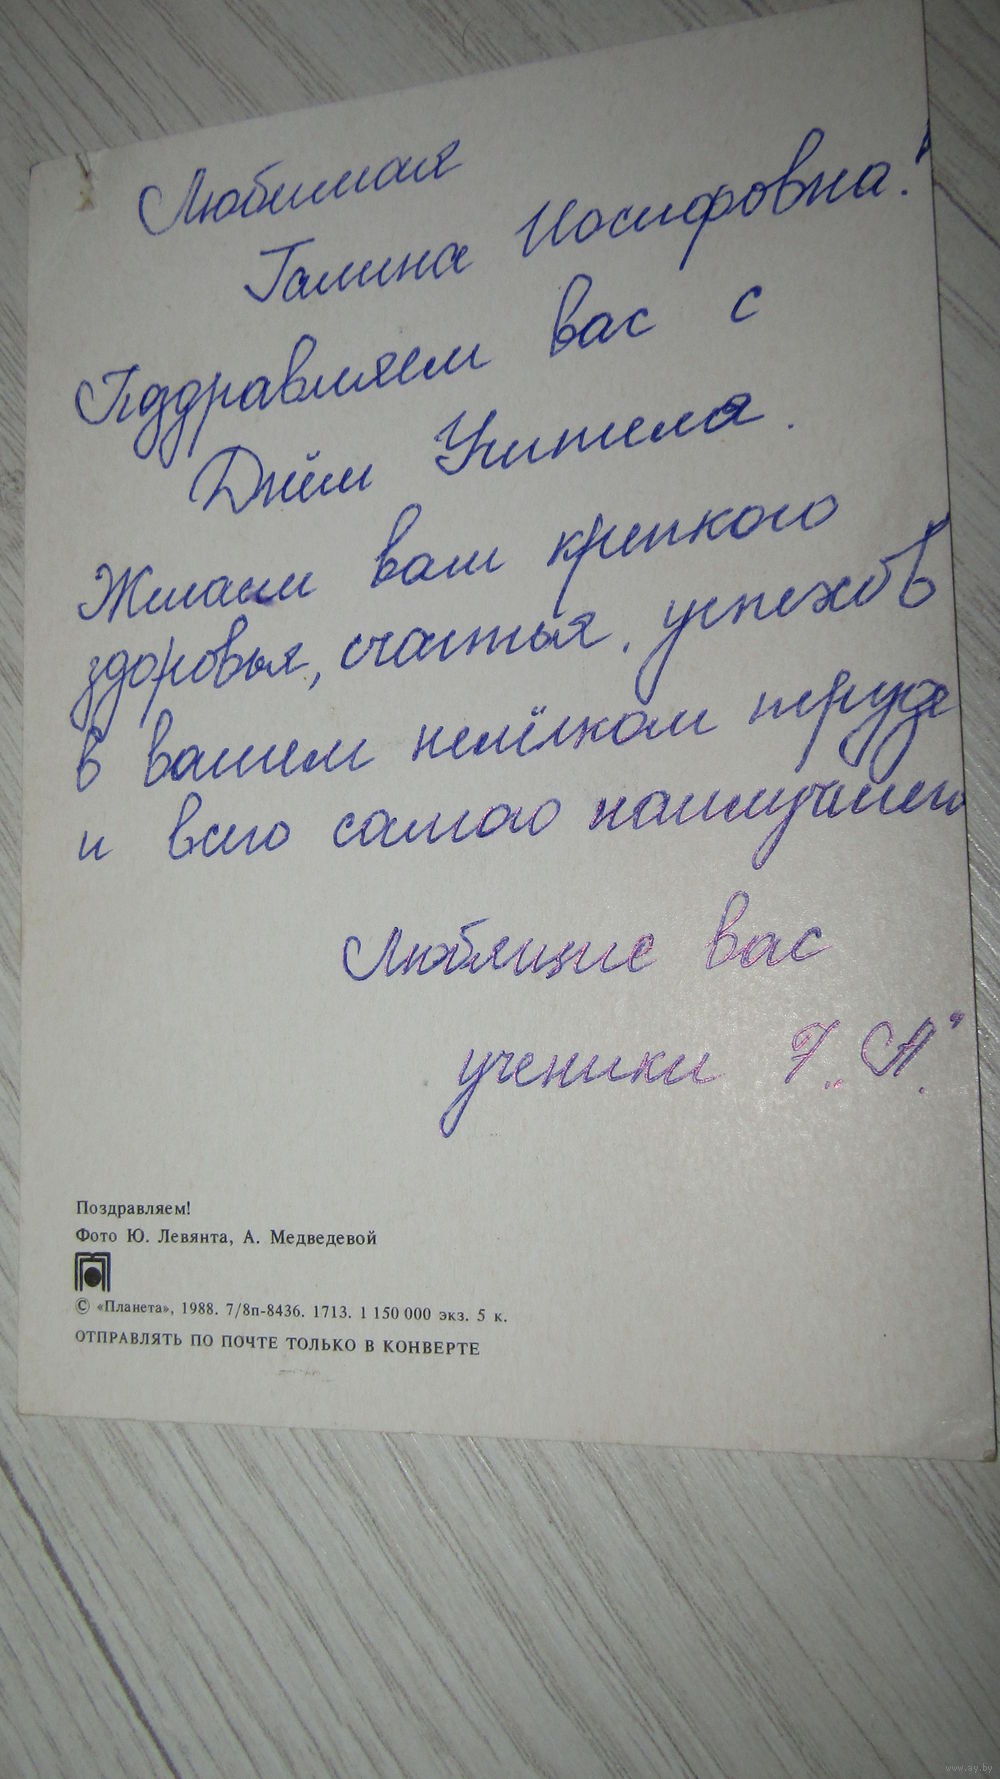 Любимая
Галина Иосифовна!
Пздравляем вас с
Днём Учителя.
Желаем вам крепкого
здоровья, счастья, успехов
в вашем нелёгком труде
и всего самого наилучшего
Любящие вас
ученики 7 „А“.
Поздравляем!
Фото Ю. Левянта, А. Медведевой
© «Планета», 1988. 7/8п-8436. 1713. 1 150 000 экз. 5 к.
ОТПРАВЛЯТЬ ПО ПОЧТЕ ТОЛЬКО В КОНВЕРТЕ
www.ay.by